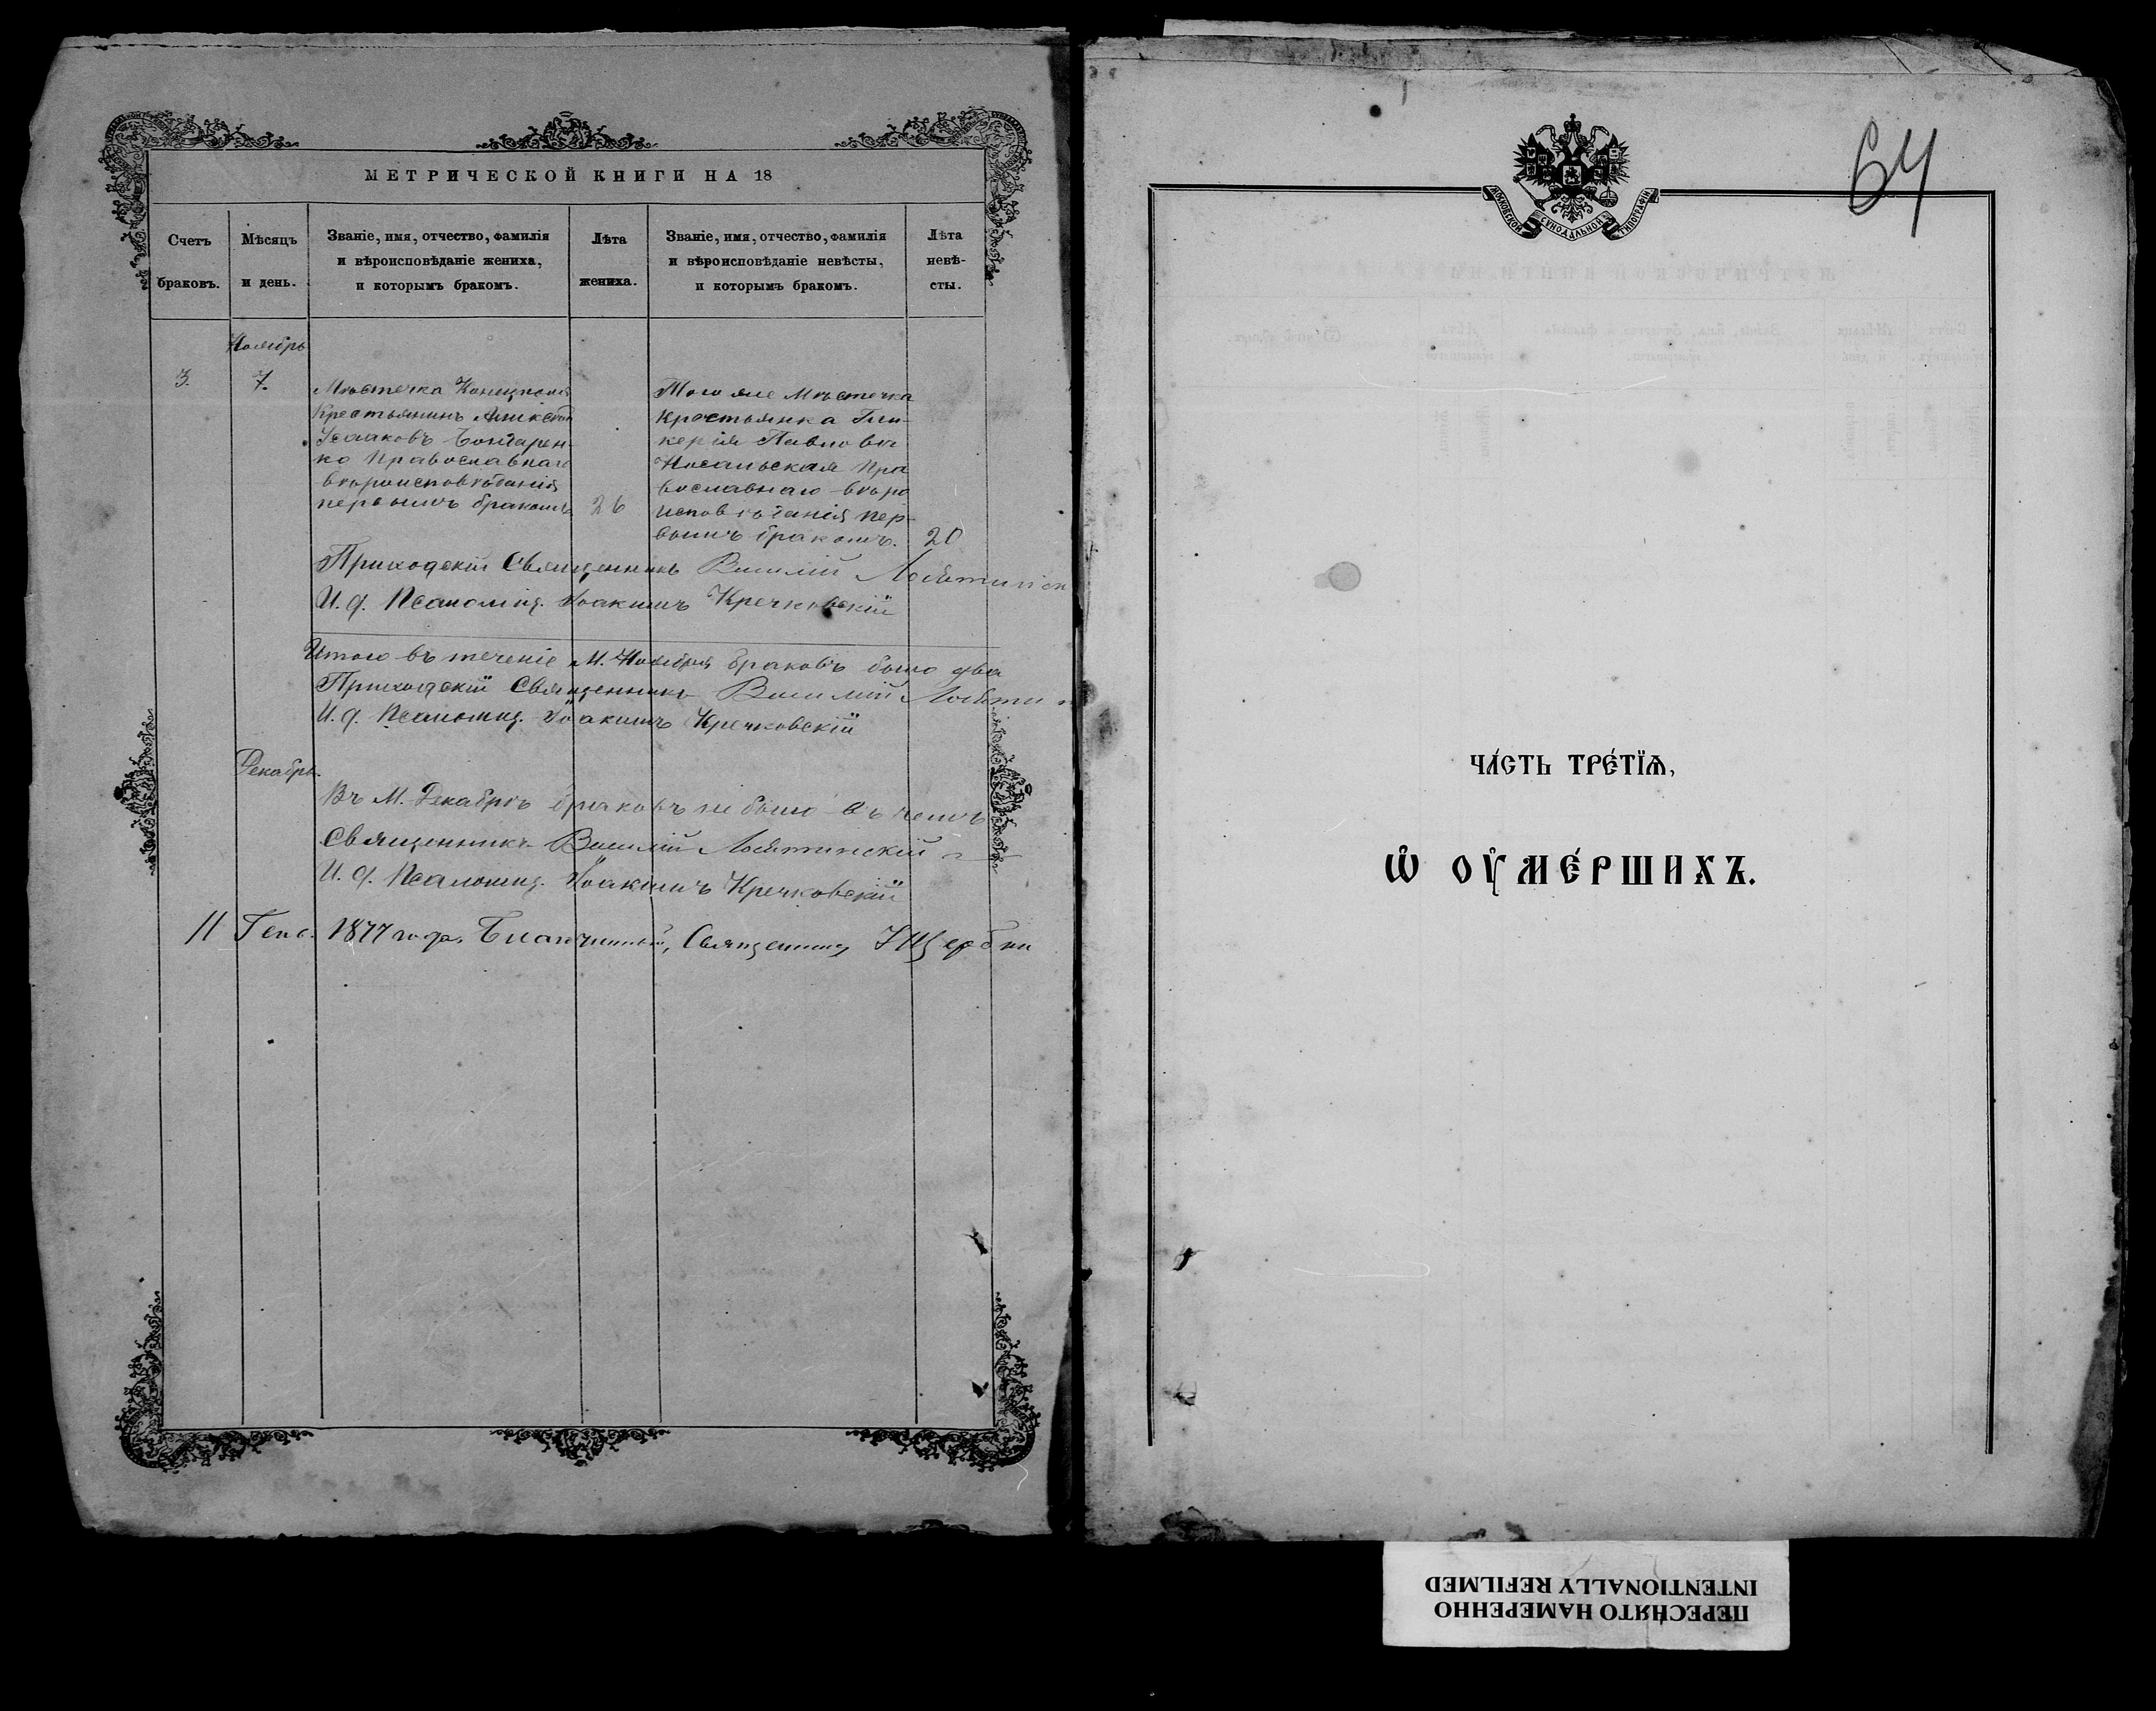 МЕТРИЧЕСКОЙ КНИГИ НА 18
Счетъ браковъ.
Мѣсяцъ и день.
Званіе, имя, отчество, фамилія
и вѣроисповѣданіе жениха,
и которымъ бракомъ.
Лѣта жениха.
Званіе, имя, отчество, фамилія
и вѣроисповѣданіе невѣсты,
и которымъ бракомъ.
Лѣта
невѣ-
сты.
Ноябрь
3. 7.
Мѣстечка
Крестьянинъ
Исааковъ Бондарен-
ко Православнаго
вѣроисповѣданія
первымъ бракомъ
26
Того же Мѣстечка
Крестьянка Гли-
керія Павлова
Носальская Пра
вославнаго вѣро
исповѣданія пер-
вымъ бракомъ.
20
Приходскій Священникъ Василій
И. д. Псаломщ. Іоакимъ Кречковскій
Итого въ теченіе М. Ноября браковъ было два
Приходскій Священникъ Василій
И. д. Псаломщ. Іоакимъ Кречковскій
Декабрь.
Въ М. Декабрѣ браковъ не было въ чемъ
Священникъ Василій
И. д. Псаломщ. Іоакимъ Кречковскій
11 Генв. 1877 года Благочинный, Священникъ
64
МОСКОВСКОЙ СѴНОДАЛЬНОЙ ТИПОГРАФІИ
ЧА́СТЬ ТРЕ́ТЇѦ,
Ѡ҆ ОУ҆МЕ́РШИХЪ.
ПЕРЕСНЯТО НАМЕРЕННО
INTENTIONALLY REFILMED